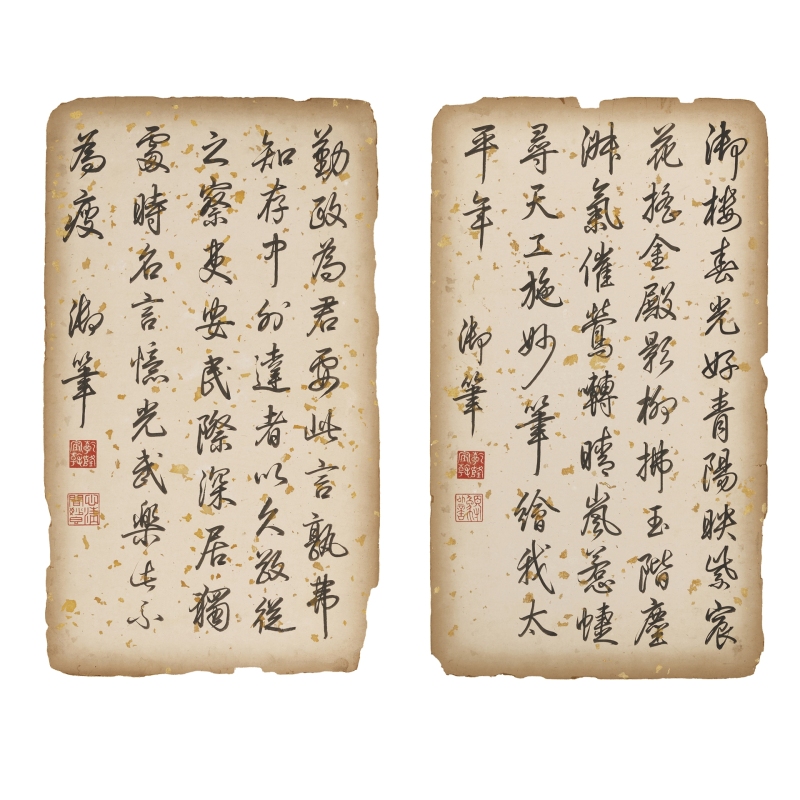 御樓春光好青陽映紫宸
花搖金殿影柳拂玉階塵
淑氣催鶯轉晴嵐惹蜨
尋天工施妙筆繪我太
平年 御筆
乾隆宸翰
勤政為君要此言孰弗
知存中外達者以久敬從
之察吏安民際深居獨
處時名言憶光武樂此不
為疲 御筆
乾隆宸翰